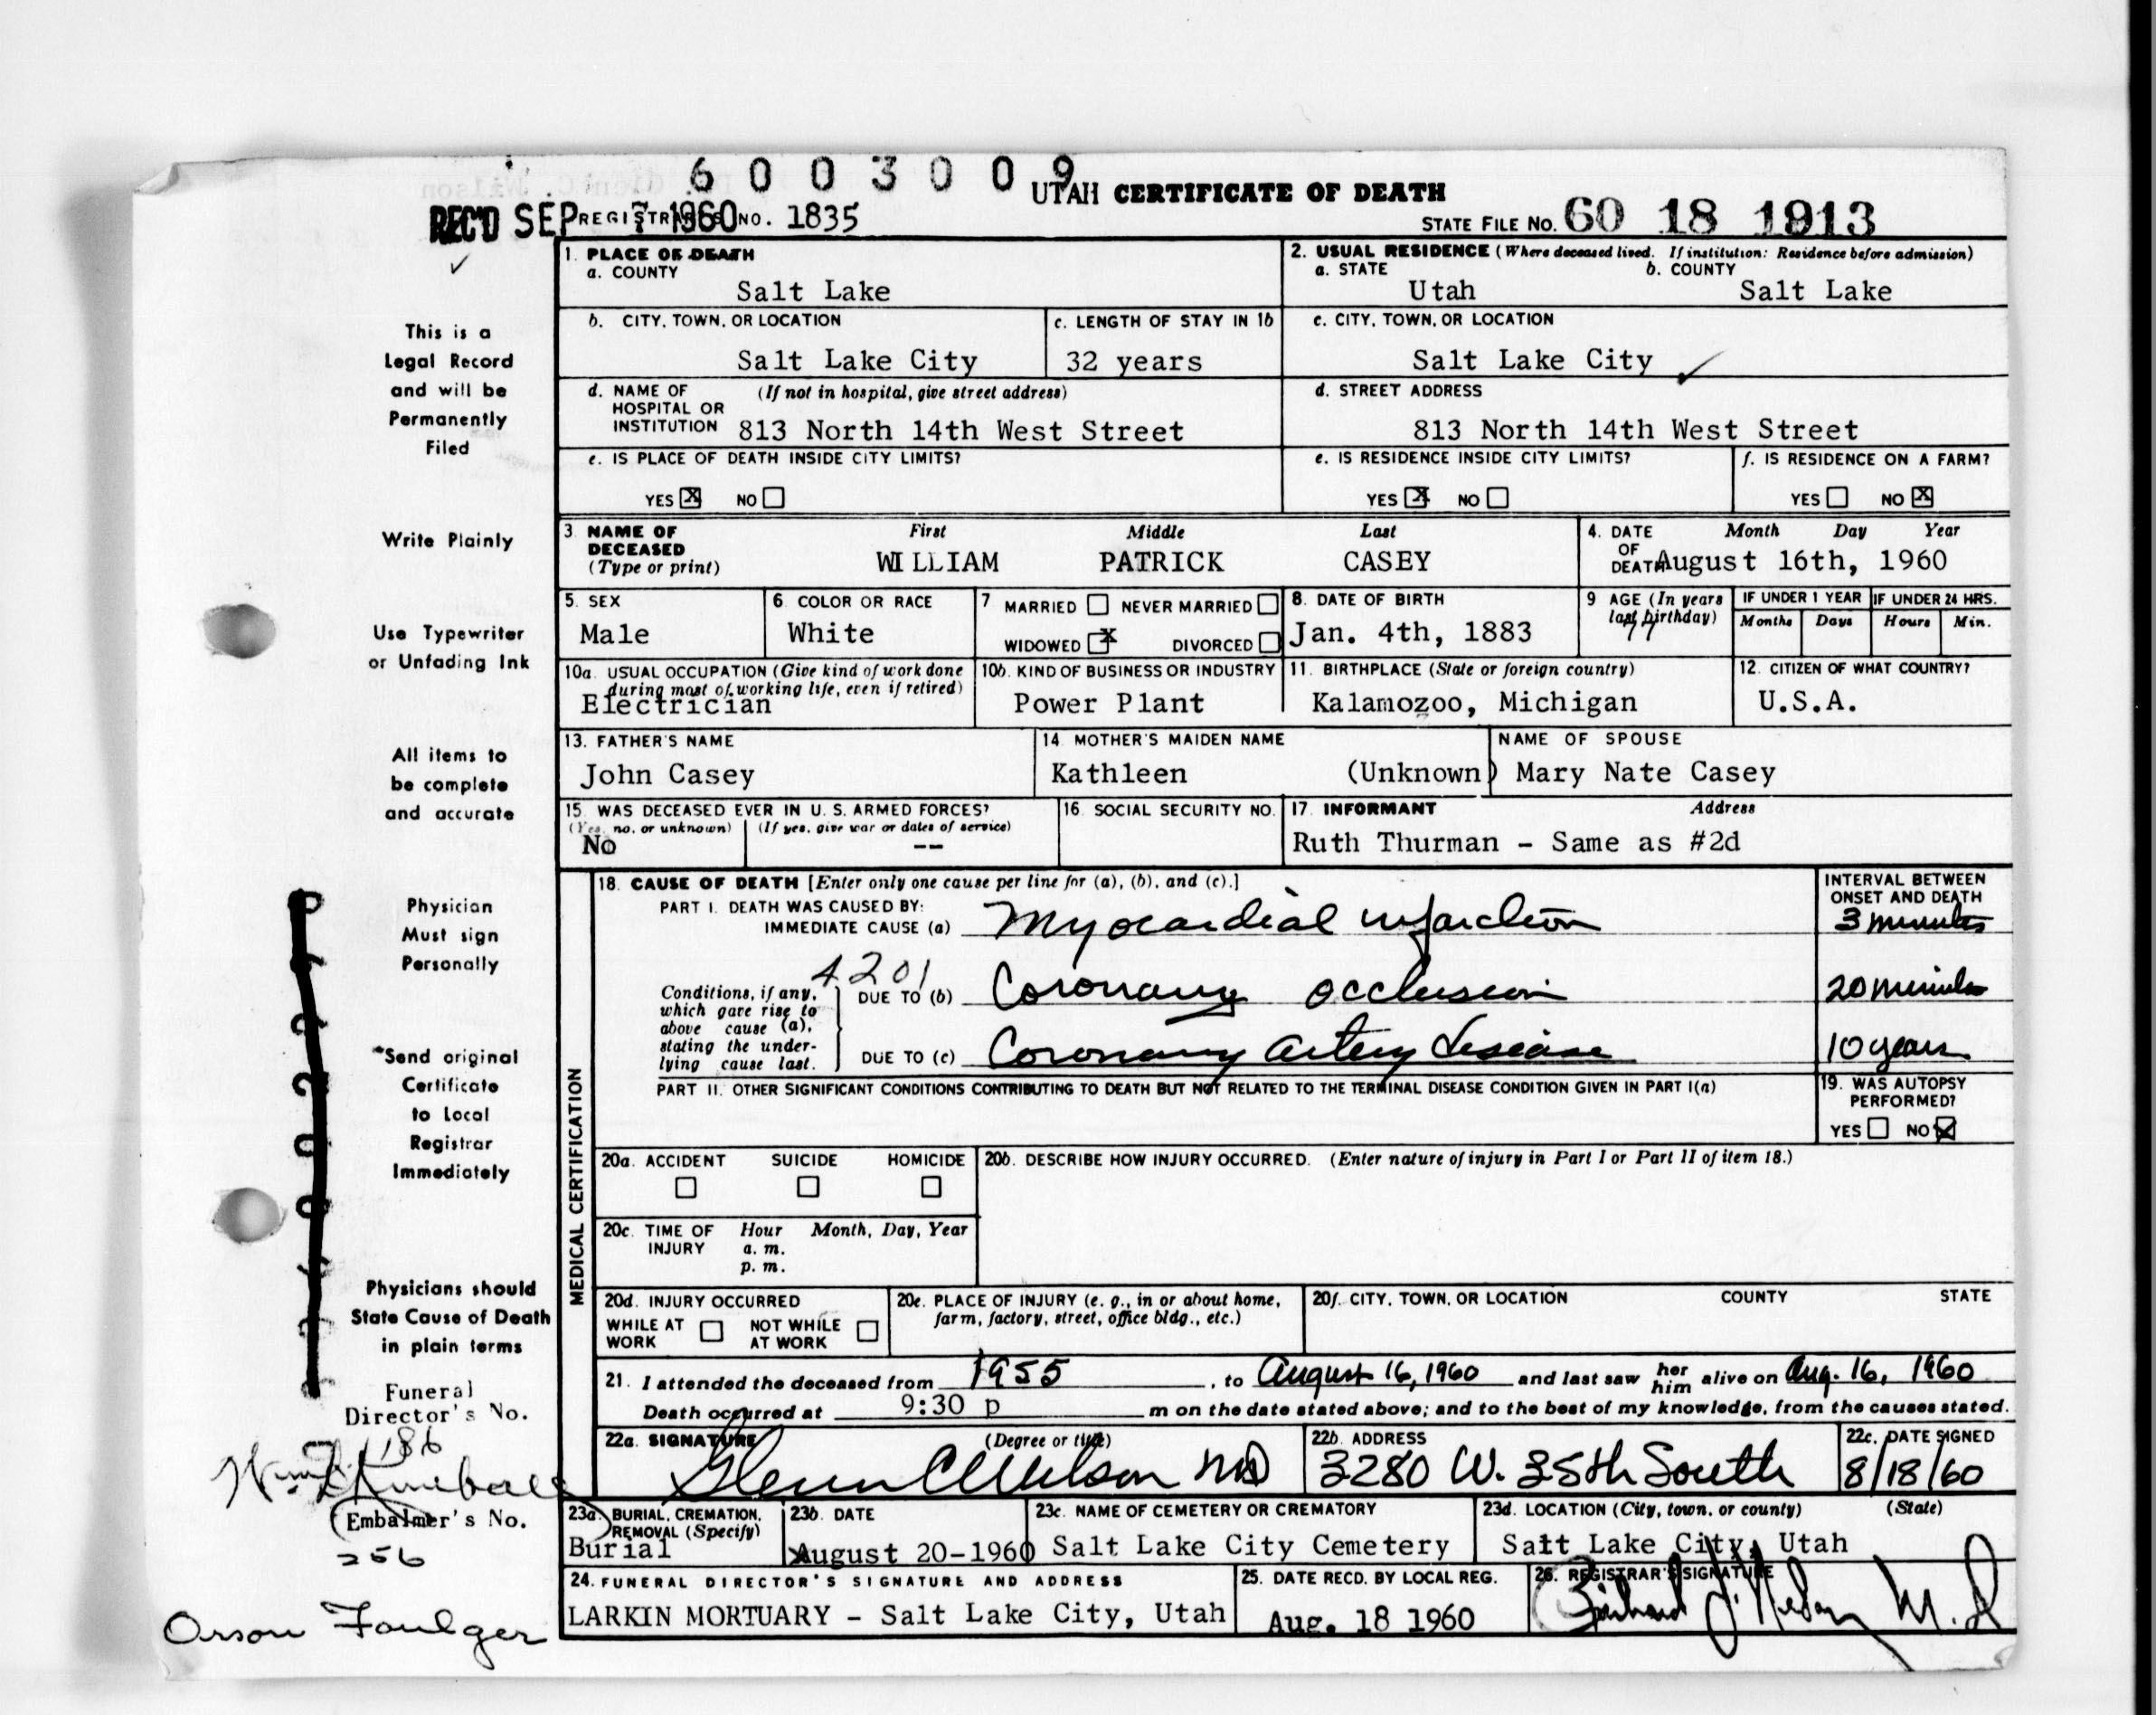 6 0 0 3 0 0 9
UTAH CERTIFICATE OF DEATH
REC'D SEP 7 1960 REGISTRAR'S NO. 1835
STATE FILE No. 60 18 1913
1. PLACE OF DEATH
a. COUNTY
Salt Lake
2. USUAL RESIDENCE (Where deceased lived. If institution: Residence before admission)
a. STATE b. COUNTY
Utah Salt Lake
b. CITY, TOWN, OR LOCATION
Salt Lake City
c. LENGTH OF STAY IN 1b
32 years
c. CITY, TOWN, OR LOCATION
Salt Lake City
d. NAME OF HOSPITAL OR INSTITUTION (If not in hospital, give street address)
813 North 14th West Street
d. STREET ADDRESS
813 North 14th West Street
e. IS PLACE OF DEATH INSIDE CITY LIMITS?
YES X NO
e. IS RESIDENCE INSIDE CITY LIMITS?
YES X NO
f. IS RESIDENCE ON A FARM?
YES NO X
3. NAME OF DECEASED (Type or print)
First Middle Last
WILLIAM PATRICK CASEY
4. DATE OF DEATH Month Day Year
August 16th, 1960
5. SEX
Male
6. COLOR OR RACE
White
7 MARRIED NEVER MARRIED
WIDOWED X DIVORCED
8. DATE OF BIRTH
Jan. 4th, 1883
9 AGE (In years last birthday)
77
IF UNDER 1 YEAR IF UNDER 24 HRS.
Months Days Hours Min.
10a. USUAL OCCUPATION (Give kind of work done during most of working life, even if retired)
Electrician
10b. KIND OF BUSINESS OR INDUSTRY
Power Plant
11. BIRTHPLACE (State or foreign country)
Kalamozoo, Michigan
12. CITIZEN OF WHAT COUNTRY?
U.S.A.
13. FATHER'S NAME
John Casey
14 MOTHER'S MAIDEN NAME
Kathleen (Unknown)
NAME OF SPOUSE
Mary Nate Casey
15. WAS DECEASED EVER IN U. S. ARMED FORCES?
(Yes, no, or unknown) (If yes, give war or dates of service)
No --
16. SOCIAL SECURITY NO.
17. INFORMANT Address
Ruth Thurman - Same as #2d
MEDICAL CERTIFICATION
18. CAUSE OF DEATH [Enter only one cause per line for (a), (b), and (c).]
PART I. DEATH WAS CAUSED BY:
IMMEDIATE CAUSE (a) Myocardial infarction
INTERVAL BETWEEN ONSET AND DEATH
3 minutes
4201
Conditions, if any, which gave rise to above cause (a), stating the underlying cause last.
DUE TO (b) Coronary occlusion
20 minutes
DUE TO (c) Coronary artery disease
10 years
PART II. OTHER SIGNIFICANT CONDITIONS CONTRIBUTING TO DEATH BUT NOT RELATED TO THE TERMINAL DISEASE CONDITION GIVEN IN PART I(a)
19. WAS AUTOPSY PERFORMED?
YES NO X
20a. ACCIDENT SUICIDE HOMICIDE
20b. DESCRIBE HOW INJURY OCCURRED. (Enter nature of injury in Part I or Part II of item 18.)
20c. TIME OF INJURY Hour Month, Day, Year
a. m.
p. m.
20d. INJURY OCCURRED
WHILE AT WORK NOT WHILE AT WORK
20e. PLACE OF INJURY (e. g., in or about home, farm, factory, street, office bldg., etc.)
20f. CITY, TOWN, OR LOCATION COUNTY STATE
21. I attended the deceased from 1955, to August 16, 1960 and last saw her him alive on Aug. 16, 1960
Death occurred at 9:30 p m on the date stated above; and to the best of my knowledge, from the causes stated.
22a. SIGNATURE (Degree or title)
Glenn C Wilson MD
22b. ADDRESS
3280 W. 35th South
22c. DATE SIGNED
8/18/60
23a. BURIAL, CREMATION, REMOVAL (Specify)
Burial
23b. DATE
August 20-1960
23c. NAME OF CEMETERY OR CREMATORY
Salt Lake City Cemetery
23d. LOCATION (City, town, or county) (State)
Salt Lake City, Utah
24. FUNERAL DIRECTOR'S SIGNATURE AND ADDRESS
LARKIN MORTUARY - Salt Lake City, Utah
25. DATE RECD. BY LOCAL REG.
Aug. 18 1960
26. REGISTRAR'S SIGNATURE
M.D
This is a
Legal Record
and will be
Permanently
Filed
Write Plainly
Use Typewriter
or Unfading Ink
All items to
be complete
and accurate
Physician
Must sign
Personally
Send original
Certificate
to Local
Registrar
Immediately
Physicians should
State Cause of Death
in plain terms
Funeral
Director's No.
186
Embalmer's No.
256
Orson Foulger